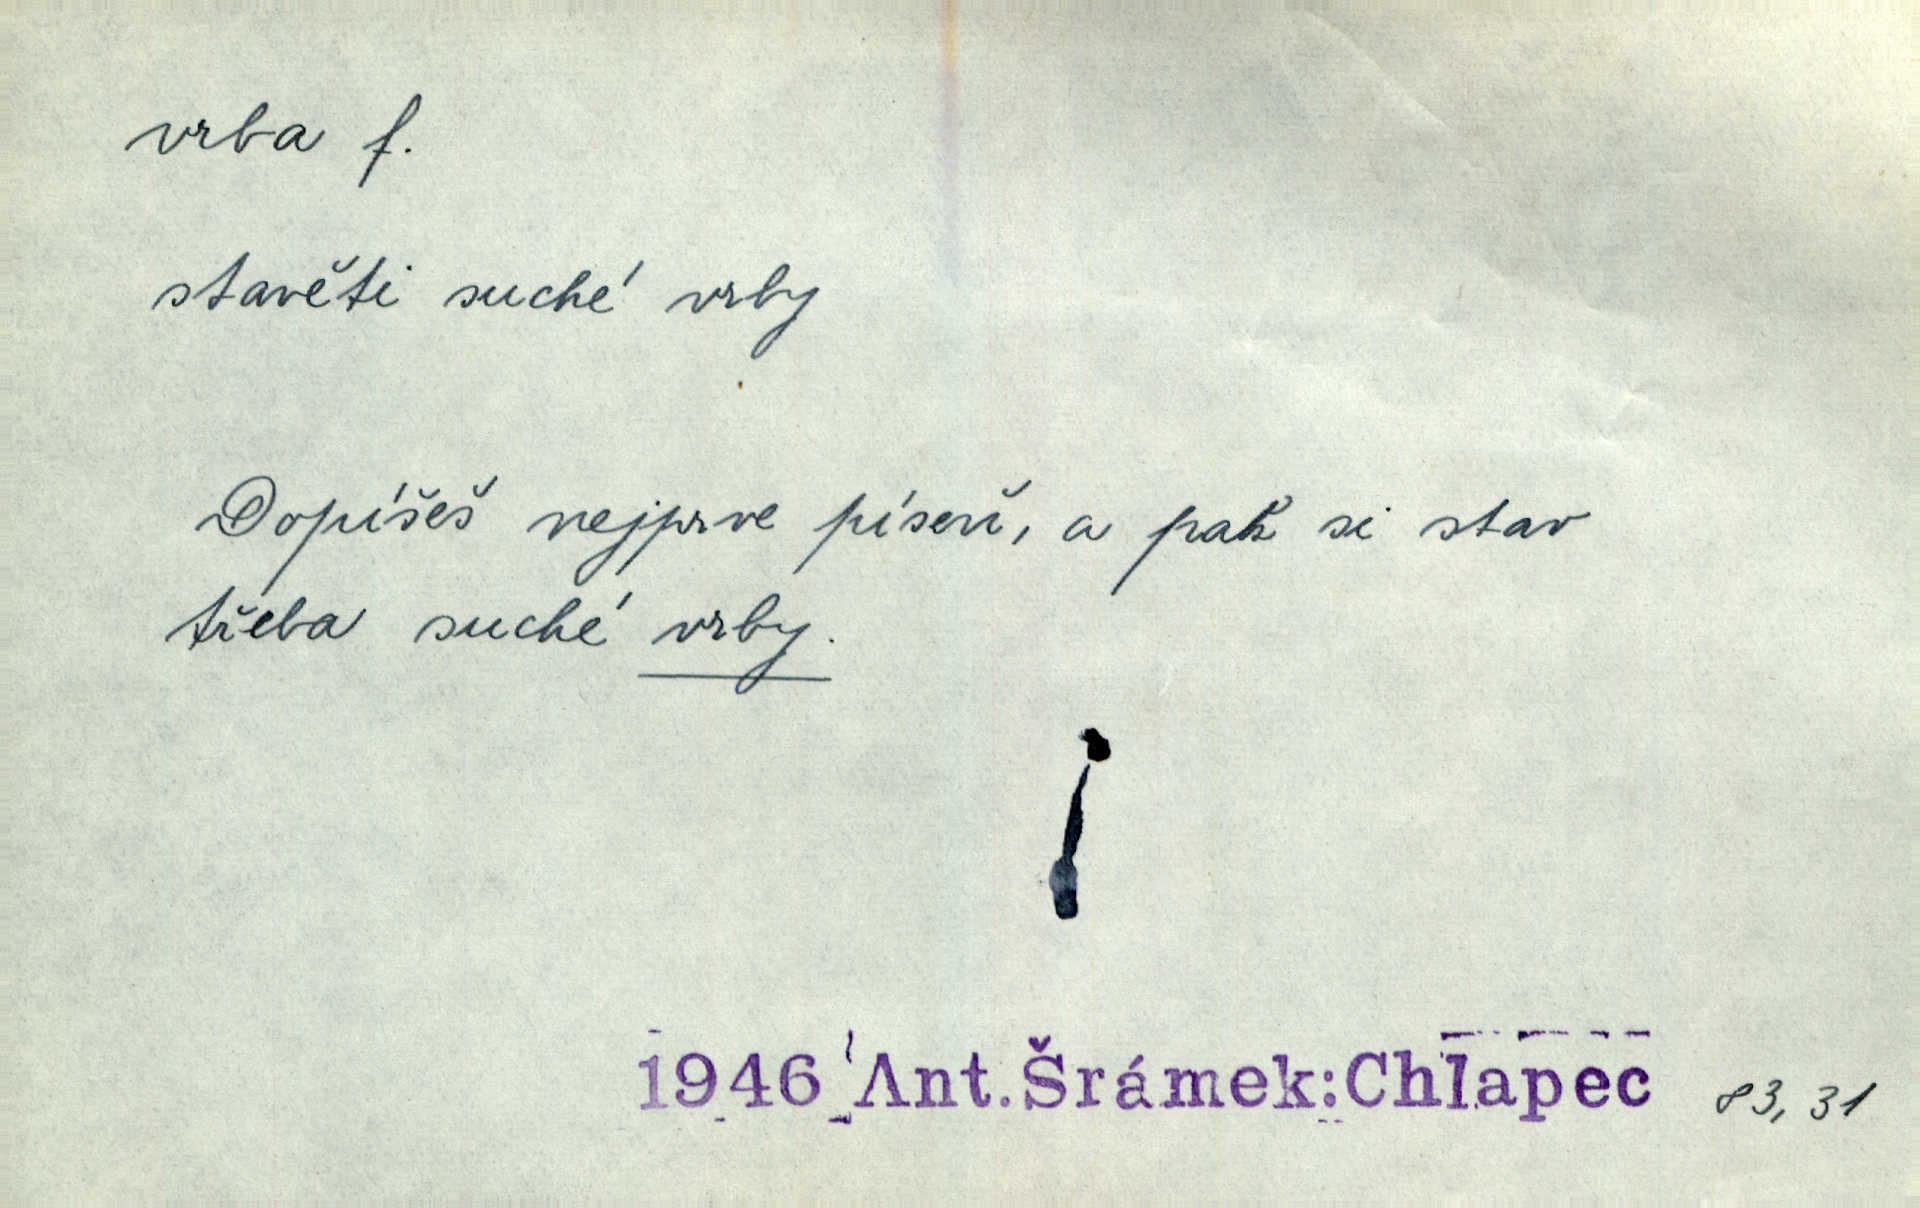 vrba f.
stavěti suché vrby
Dopíšeš nejprve píseň, a pak si stav
třeba suché vrby.
1946 Ant. Šrámek: Chlapec 83, 31